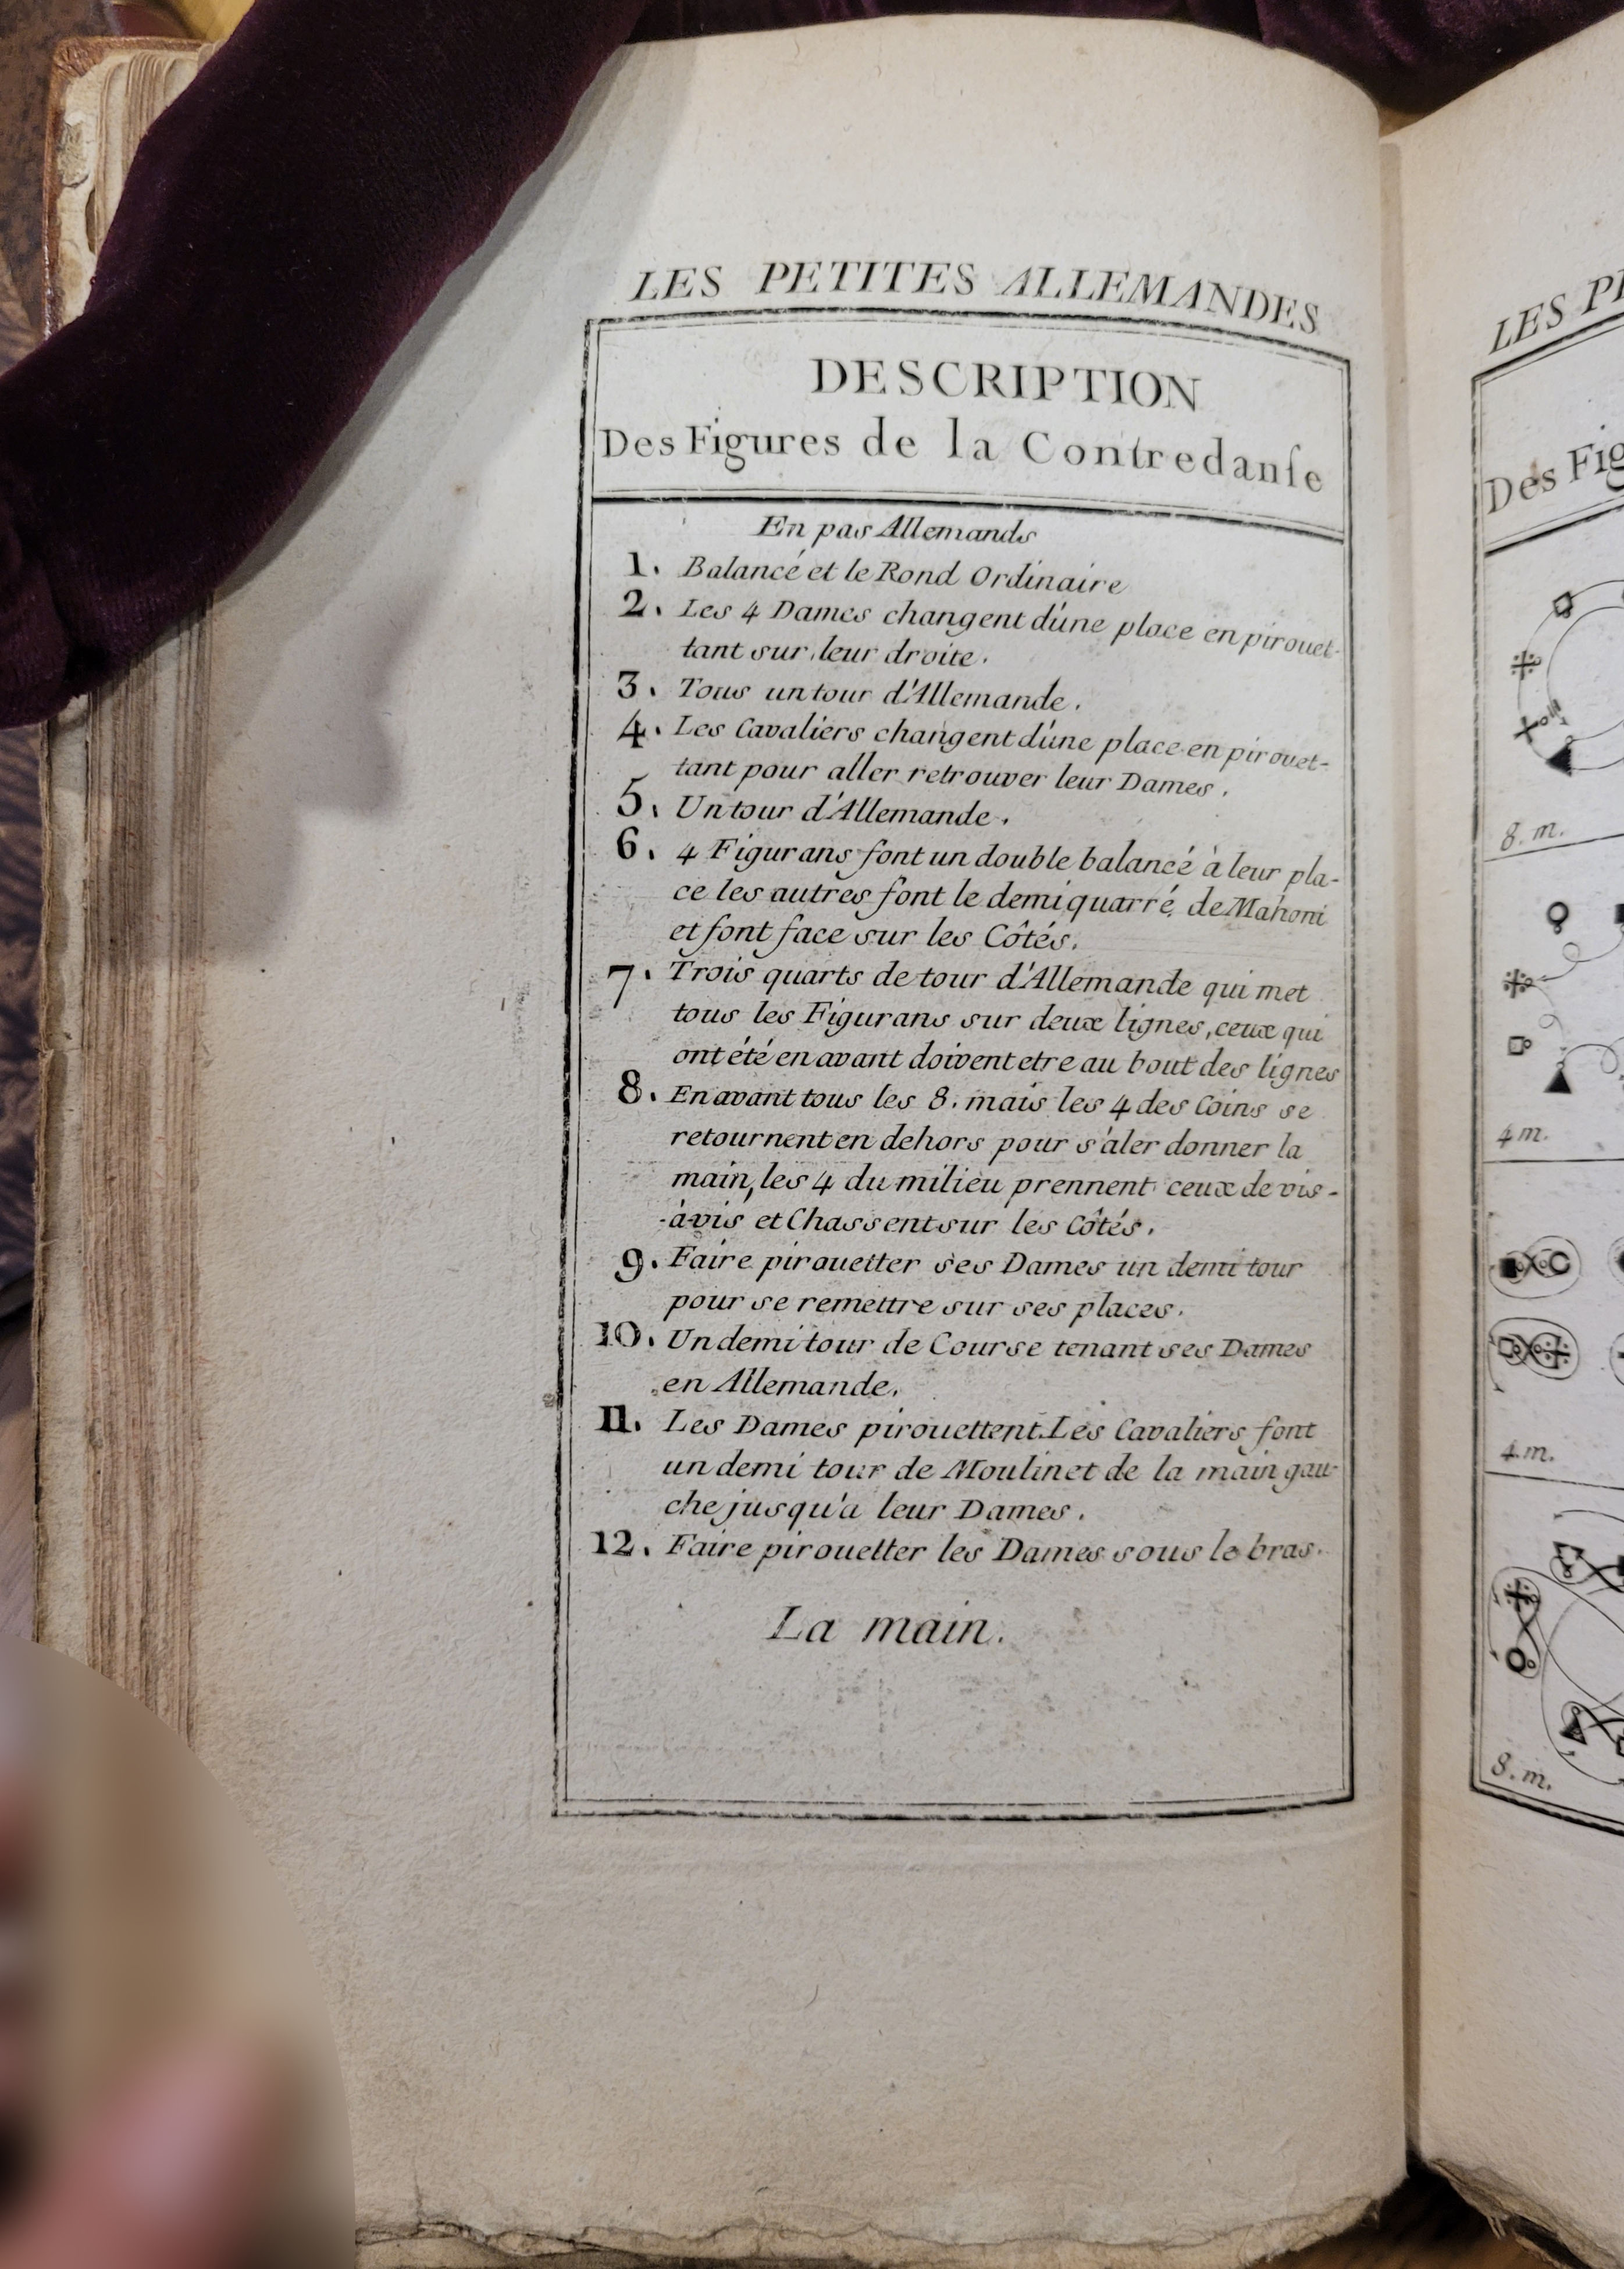 LES PETITES ALLEMANDES
DESCRIPTION
Des Figures de la Contredanſe
En pas Allemands
1. Balancé et le Rond Ordinaire
2. Les 4 Dames changent d'une place en pirouet-
tant sur leur droite.
3. Tous un tour d'Allemande.
4. Les Cavaliers changent d'une place en pirouet-
tant pour aller retrouver leur Dames.
5. Un tour d'Allemande.
6. 4 Figurans font un double balancé à leur pla-
ce les autres font le demi quarré de Mahoni
et font face sur les Côtés.
7. Trois quarts de tour d'Allemande qui met
tous les Figurans sur deux lignes, ceux qui
ont été en avant doivent etre au bout des lignes
8. En avant tous les 8. mais les 4 des Coins se
retournent en dehors pour s'aler donner la
main, les 4 du milieu prennent ceux de vis-
-à-vis et Chassent sur les Côtés.
9. Faire pirouetter ses Dames un demi tour
pour se remettre sur ses places.
10. Un demi tour de Course tenant ses Dames
en Allemande.
11. Les Dames pirouettent. Les Cavaliers font
un demi tour de Moulinet de la main gau-
che jusqu'a leur Dames.
12. Faire pirouetter les Dames sous le bras.
La main.
LES PE
Des Fig
8. m.
4 m.
4. m.
8. m.